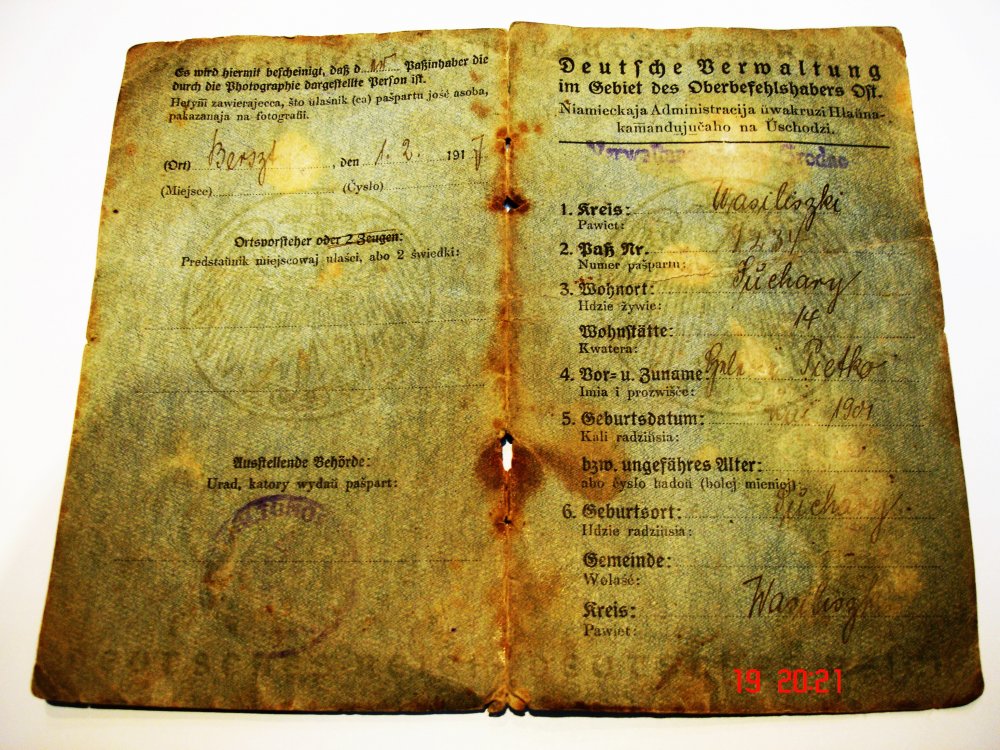 Es wird hiermit bescheinigt, daß d............ Paßinhaber die
durch die Photographie dargestellte Person ist.
Hetym zawierajecca, što ułaśnik (ca) pašpartu jość asoba,
pakazanaja na fotografii.
(Ort) Berszt, den 1. 2. 1917
(Miejsce) (Čysło)
Ortsvorsteher oder 2 Zeugen:
Predstaŭnik miejscowaj ułaści, abo 2 świedki:
Ausstellende Behörde:
Urad, katory wydaŭ pašpart:
Deutsche Verwaltung
im Gebiet des Oberbefehlshabers Ost.
Niamieckaja Administracija ŭwakruzi Hłaŭna-
kamandujučaho na Ŭschodzi.
Grodno
1. Kreis: Wasiliszki
Pawiet:
2. Paß Nr. 1234
Numer pašpartu:
3. Wohnort: Suchary
Hdzie żywie:
Wohnstätte: 14
Kwatera:
4. Vor- u. Zuname: Pietko
Imia i prozwišče:
5. Geburtsdatum: 1901
Kali radziŭsia:
bzw. ungefähres Alter:
abo čysło hadoŭ (bolej mieniej):
6. Geburtsort: Suchary
Hdzie radziŭsia:
Gemeinde:
Wołaść:
Kreis: Wasiliszki
Pawiet:
19 20:21